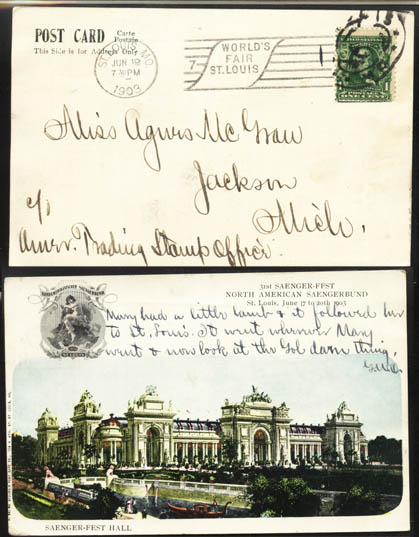 POST CARD
Carte
Postale
This Side is for Address Only
ST. LOUIS, MO.
JUN 18
7-PM
1903
7
WORLD'S
FAIR
ST. LOUIS
1
Miss Agnes McGraw
Jackson
Mich.
c/o
Amer. Trading Stamp Office.
31st SAENGER-FEST
NORTH AMERICAN SAENGERBUND
St. Louis, June 17 to 20th 1903
Mary had a little lamb & it followed her
to St. Louis. It went wherever Mary
went & now look at the Gol darn thing.
SAENGER-FEST HALL